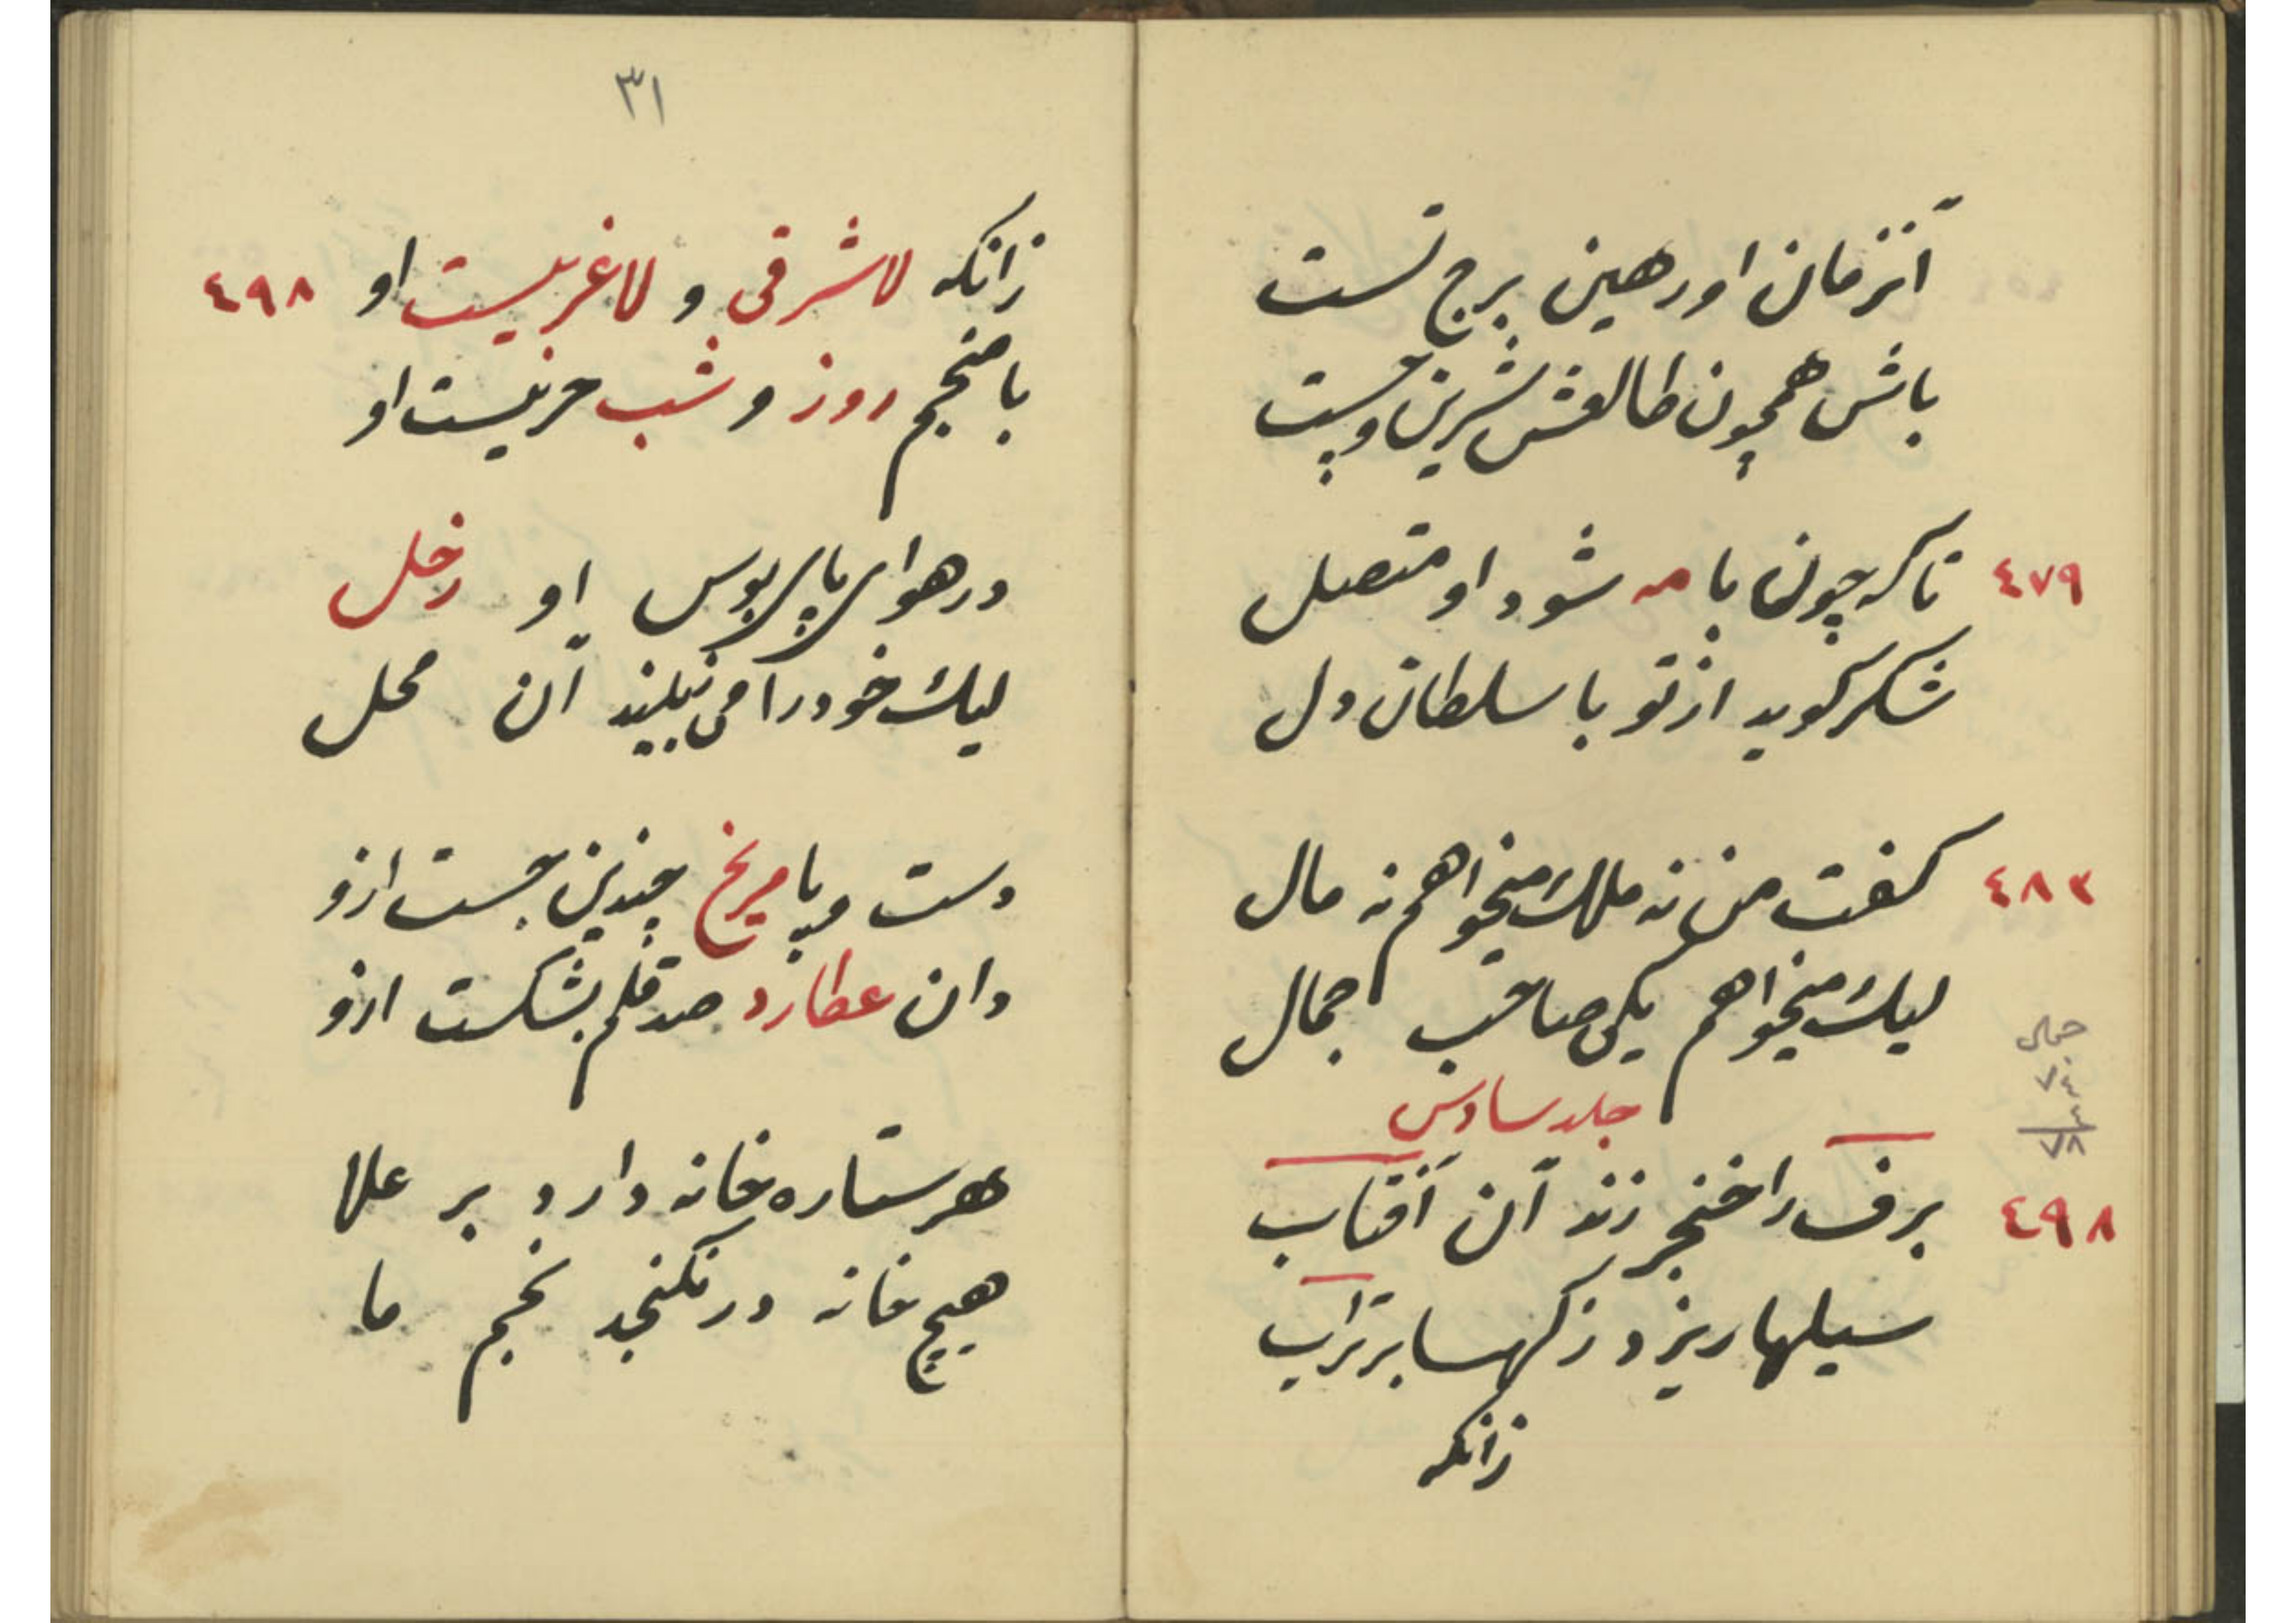 آنزمان او رهین برج تست
باش همچون طالعش شیرین و چست
٤٧٩ تا که چون با مه شود او متصل
شکر گوید از تو با سلطان دل
٤٨٣ گفت من نه ملك میخواهم نه مال
لیك میخواهم یکی صاحب جمال
جمال
٧٤
٧٨
جلد سادس
٤٩٨ برف را خنجر زند آن آفتاب
سیلها ریزد ز کهسا بر تراب
زانکه
٣١
زانکه لاشرقی و لاغربیست او ٤٩٨
با منجم روز و شب حربیست او
در هوای پای بوس او زحل
لیك خود را می نبیند آن محل
دست و پا مریخ چندین جست ازو
وان عطارد صد قلم بشکست ازو
هر ستاره خانه دارد بر علا
هیچ خانه در نگنجد نجم ما